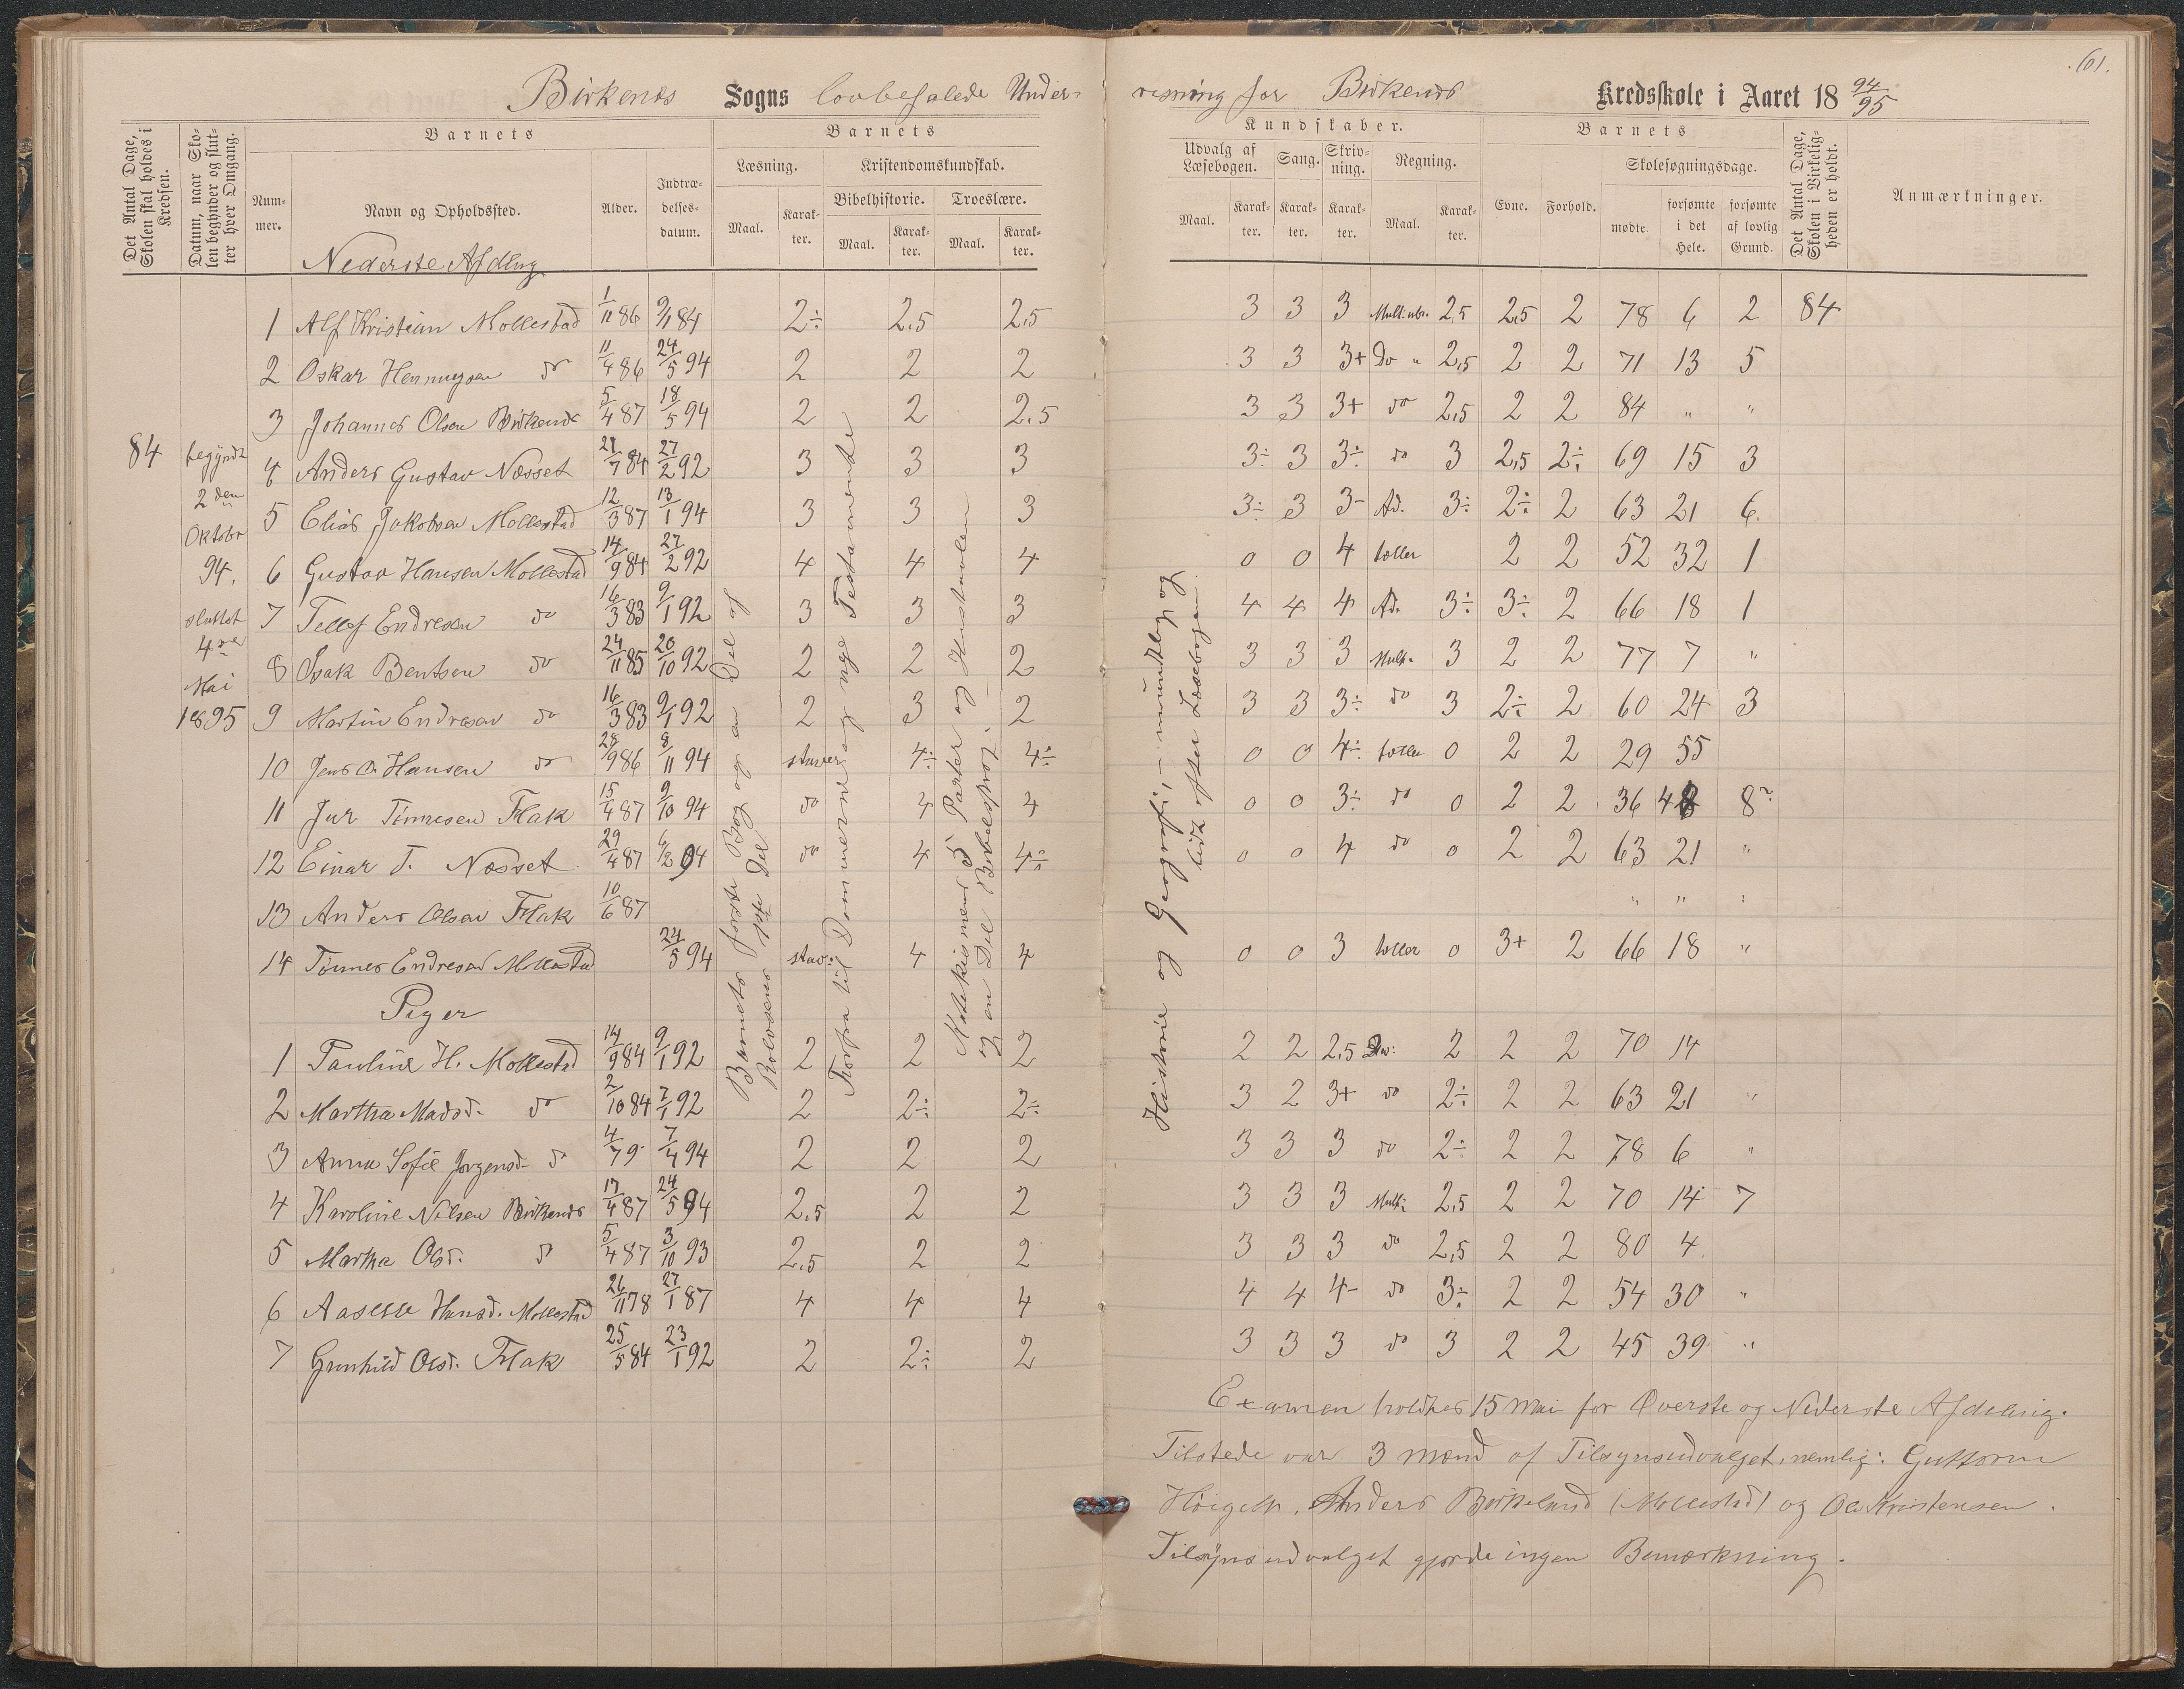 61.
Birkenes Sogns lovbefalede Under-
visning for Birkenes Kredsskole i Aaret 18 94/95
Det Antal Dage, Skolen skal holdes i Kredsen.
Datum, naar Skolen begynder og slutter hver Omgang.
Barnets
Nummer.
Navn og Opholdssted.
Alder.
Indtrædelsesdatum.
Barnets
Læsning.
Maal.
Karakter.
Kristendomskundskab.
Bibelhistorie.
Maal.
Karakter.
Troeslære.
Maal.
Karakter.
Kundskaber.
Udvalg af Læsebogen.
Maal.
Karakter.
Sang.
Karakter.
Skrivning.
Karakter.
Regning.
Maal.
Karakter.
Barnets
Evne.
Forhold.
Skolesøgningsdage.
mødte.
forsømte i det Hele.
forsømte af lovlig Grund.
Det Antal Dage, Skolen i Virkeligheden er holdt.
Anmærkninger.
Nederste Afdling
84
begyndt
2den
Oktobr
94.
sluttet
4de
Mai
1895
1 Alf Kristian Mollestad 1/11 86 9/1 84 2÷ 2.5 2.5 3 3 3 2.5 2,5 2 78 6 2 84
2 Oskar Henningsen do 11/4 86 24/5 94 2 2 2 3 3 3+ Do " 2,5 2 2 71 13 5
3 Johannes Olsen Birkenes 5/4 87 18/5 94 2 2 2.5 3 3 3+ do 2,5 2 2 84 " "
4 Anders Gustav Næsset 21/7 84 27/2 92 3 3 3 3÷ 3 3÷ do 3 2,5 2÷ 69 15 3
5 Elias Jakobsen Mollestad 12/3 87 13/1 94 3 3 3 3÷ 3 3- Ad. 3÷ 2÷ 2 63 21 6
6 Gustav Hansen Mollestad 14/9 84 27/2 92 4 4 4 0 0 4 tæller 2 2 52 32 1
7 Tellef Endresen do 16/3 83 9/1 92 3 3 3 4 4 4 Ad. 3÷ 3÷ 2 66 18 1
8 Isak Bentsen do 24/11 85 20/10 92 2 2 2 3 3 3 Mult. 3 2 2 77 7 "
9 Martin Endresen do 16/3 83 9/1 92 2 3 2 3 3 3÷ do 3 2÷ 2 60 24 3
10 Jens O. Hansen do 28/9 86 8/11 94 staver 4÷ 4÷ 0 0 4÷ tæller 0 2 2 29 55
11 Jur Tönnesen Flak 15/4 87 9/10 94 do 4 4 0 0 3÷ do 0 2 2 36 48 8
12 Einar T. Næsset 29/4 87 94 do 4 4÷ 0 0 4 do 0 2 2 63 21 "
13 Anders Olsen Flak 10/6 87 " " "
14 Tönnes Endresen Mollestad 24/5 94 stav: 4 4 0 0 3 tæller 0 3+ 2 66 18 "
Piger
1 Pauline H. Mollestad 14/9 84 9/1 92 2 2 2 2 2 2.5 2 2 2 70 14
2 Martha Madsd. do 2/10 84 7/1 92 2 2÷ 2÷ 3 2 3+ do 2÷ 2 2 63 21 "
3 Anna Sofie Jørgensd. do 4/79 7/4 94 2 2 2 3 3 3 do 2÷ 2 2 78 6 "
4 Karoline Nilsen Birkenes 17/4 87 24/5 94 2.5 2 2 3 3 3 Mult. 2,5 2 2 70 14 7
5 Martha Olsd. do 5/4 87 3/10 93 2.5 2 2 3 3 3 do 2,5 2 2 80 4
6 Aaselle Hansd. Mollestad 26/11 78 27/1 87 4 4 4 4 4 4- do 3÷ 2 2 54 30 "
7 Gunhild Olsd. Flak 25/5 84 23/1 92 2 2÷ 2 3 3 3 do 3 2 2 45 39 "
Barnets første Bog og en Del af
Rolvsens 1ste Del
Forfra til Dommerne og nye Testamente
Katekismens 5 Parter og Hustavlen
og en Del Bibelsprog.
Historie og Geografi, - mundtlig og
lidt efter Læsebogen
Examen holdtes 15 Mai for Øverste og Nederste Afdeling.
Tilstede var 3 Mænd af Tilsynsudvalget, nemlig: Guttorm
Anders Birkeland (Mollestad) og Ole Kristensen.
Tilsynsudvalget gjorde ingen Bemærkning.